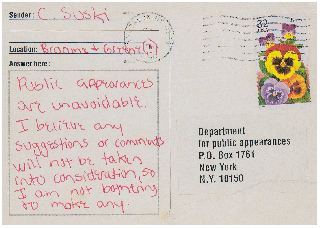 Sender: C. Suski
Location: Broome +
Answer here:
Public appearances
are unavoidable.
I believe any
suggestions or comments
will not be taken
into consideration, so
I am not bothering
to make any.
32
Department
for public appearances
P.O. Box 1761
New York
N.Y. 10150